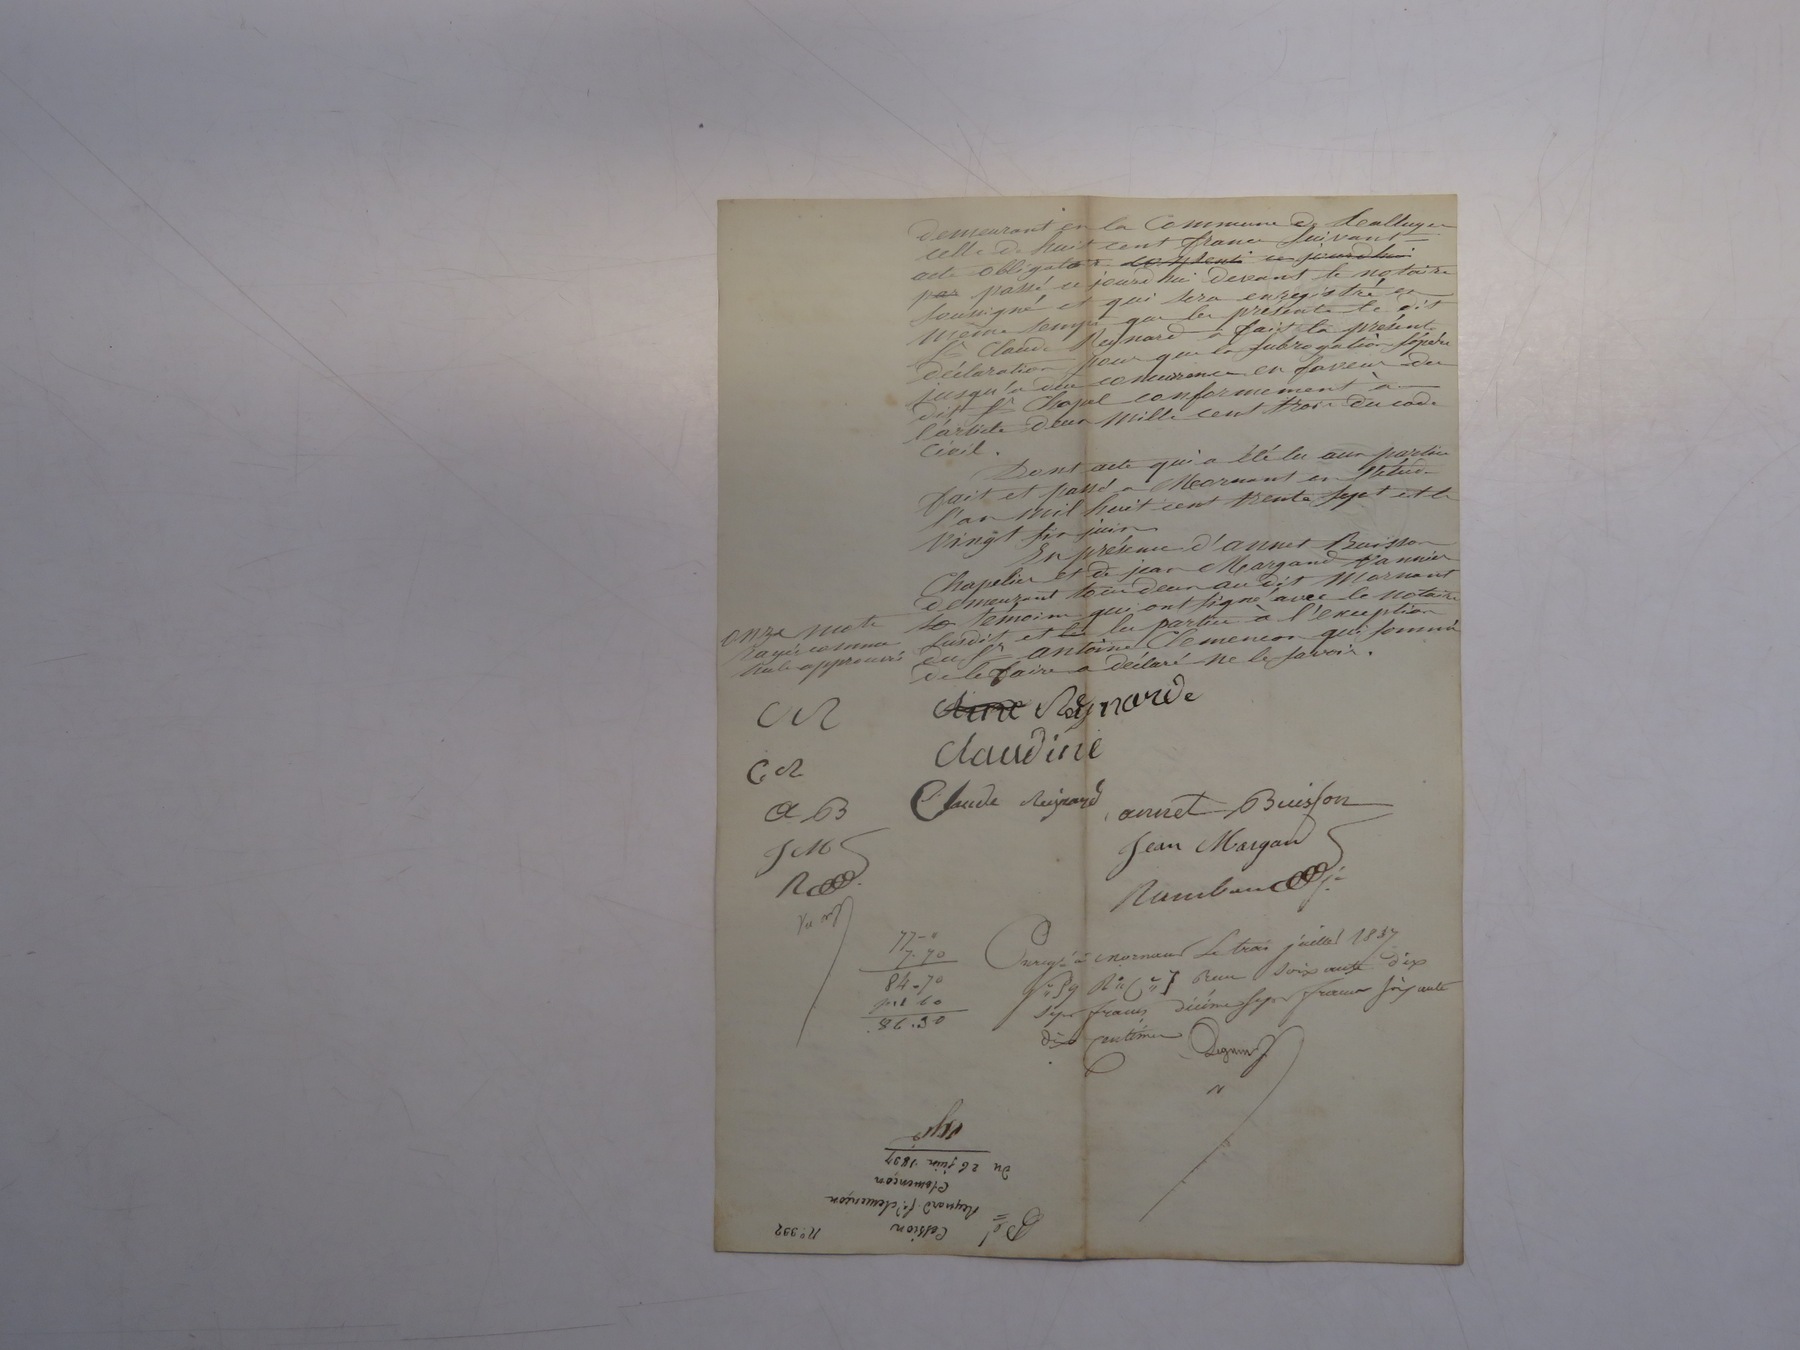 demeurant en la Commune de
celle de huit cent francs suivant
acte obligatoire consenti ce jourdhui
par passé ce jourd'hui devant le notaire
soussigné et qui sera enregistré en
même temps que les présentes le dit
Sr Claude Reynard a fait la présente
déclaration pour que la subrogation s'opère
jusqu'a due concurrence en faveur du
dit Sr Chapel conformement à
l'article deux mille cent trois du code
civil.
Dont acte qui a été lu aux parties
fait et passé a Mornant en l'étude
l'an mil huit cent trente sept et le
vingt six juin
En présence d'annet Buisson
Chapelier et de jean Margand
demeurant tous deux au dit Mornant
témoins qui ont signé avec le notaire
susdit et les parties à l'exception
du Sr antoine Clemencon qui sommé
de le faire a déclaré ne le savoir.
onze mots
rayés comme
nuls approuvés
CR
Reynarde
Claudine
C.R
Claude Reynard
annet Buisson
A B
Jean Margand
J M
R
Rambaud
77-0
7.70
84-70
1.60
86.30
Enregé à mornant Le trois juillet 1837
Reçu soixante dix
sept francs décime sept francs soixante
dix centimes
Nº 332
Cession
Reynard Sr Clemençon
Clemencon
Du 26 juin 1837